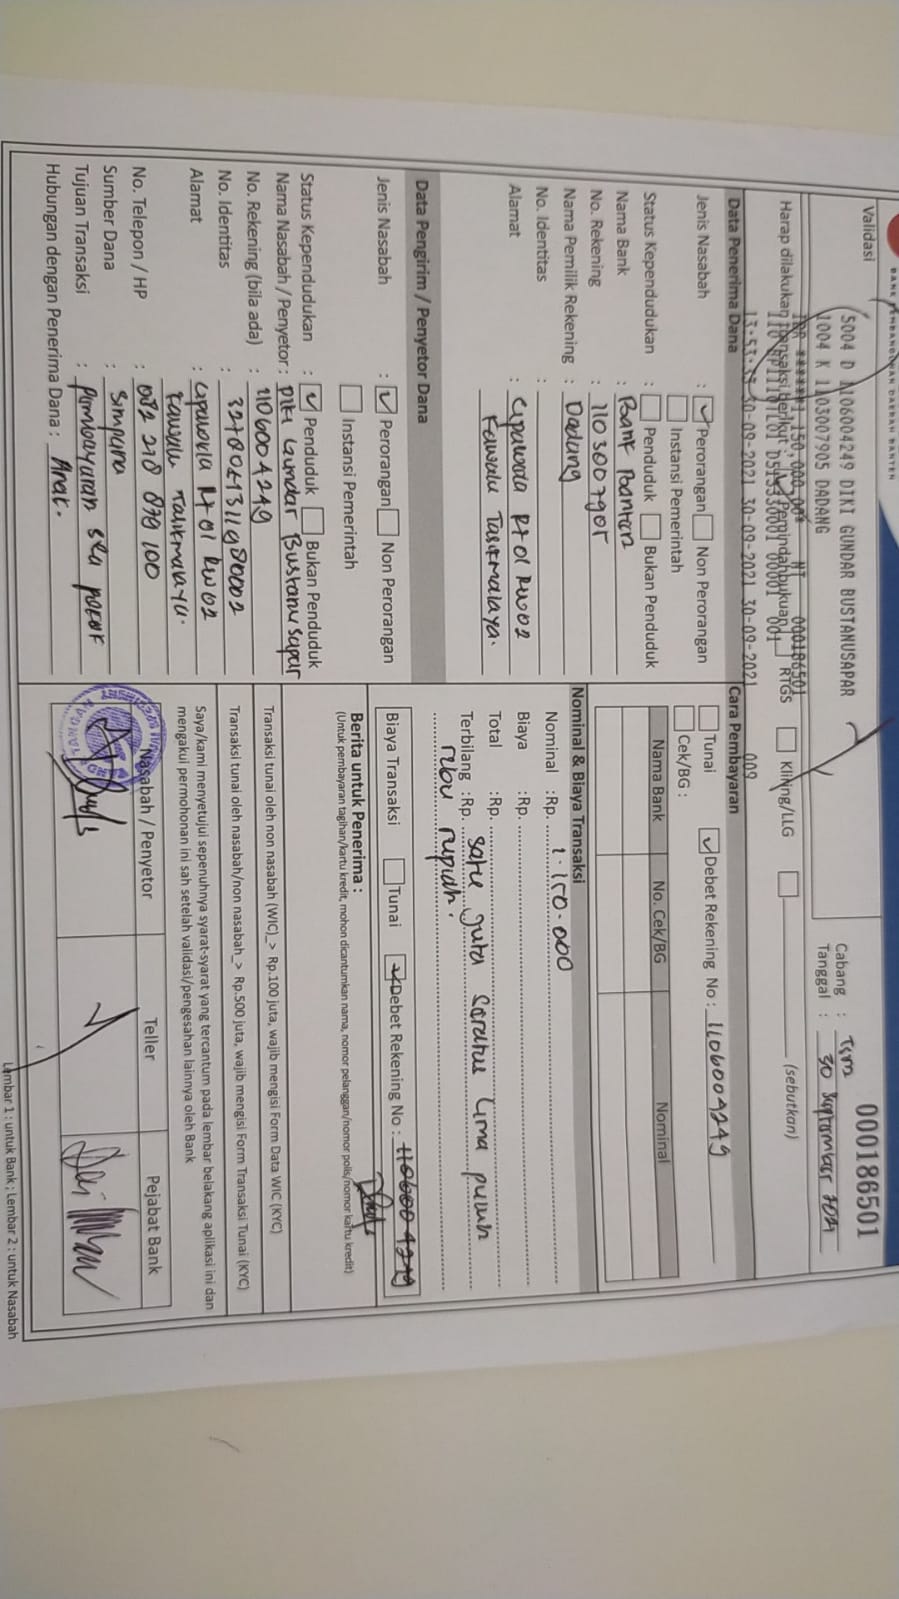 BANK PEMBANGUNAN DAERAH BANTEN
000186501
Validasi
5004 D 1106004249 DIKI GUNDAR BUSTANUSAPAR
1004 K 1103007905 DADANG
IDR ******1,150,000.00* NT 000186501
13:53:33 30-09-2021 30-09-2021 30-09-2021 009
Cabang : Tsm
Tanggal : 30 September 2021
Harap dilakukan transaksi berikut : Pemindahbukuan RTGS Kliring/LLG (sebutkan)
Data Penerima Dana
Jenis Nasabah : Perorangan Non Perorangan
Instansi Pemerintah
Status Kependudukan : Penduduk Bukan Penduduk
Nama Bank : Bank Banten
No. Rekening : 1103007905
Nama Pemilik Rekening : Dadang
No. Identitas :
Alamat : Cipawada Rt 01 Rw 02
Kawalu Tasikmalaya.
Cara Pembayaran
Tunai Debet Rekening No : 1106004249
Cek/BG :
Nama Bank No. Cek/BG Nominal
Nominal & Biaya Transaksi
Nominal :Rp. 1.150.000
Biaya :Rp.
Total :Rp.
Terbilang :Rp. satu juta seratus lima puluh
ribu rupiah.
Data Pengirim / Penyetor Dana
Jenis Nasabah : Perorangan Non Perorangan
Instansi Pemerintah
Status Kependudukan : Penduduk Bukan Penduduk
Nama Nasabah / Penyetor : Diki Gundar Bustanusapar
No. Rekening (bila ada) : 1106004249
No. Identitas :
Alamat :
Kawalu Tasikmalaya.
No. Telepon / HP :
Sumber Dana : Simpanan
Tujuan Transaksi : Pembayaran
Hubungan dengan Penerima Dana : Anak.
Biaya Transaksi Tunai Debet Rekening No : 1106004249
Berita untuk Penerima :
(Untuk pembayaran tagihan/kartu kredit, mohon dicantumkan nama, nomor pelanggan/nomor polis/nomor kartu kredit)
Transaksi tunai oleh non nasabah (WIC) > Rp.100 juta, wajib mengisi Form Data WIC (KYC)
Transaksi tunai oleh nasabah/non nasabah > Rp.500 juta, wajib mengisi Form Transaksi Tunai (KYC)
Saya/kami menyetujui sepenuhnya syarat-syarat yang tercantum pada lembar belakang aplikasi ini dan
mengakui permohonan ini sah setelah validasi/pengesahan lainnya oleh Bank
Nasabah / Penyetor Teller Pejabat Bank
Lembar 1 : untuk Bank ; Lembar 2 : untuk Nasabah